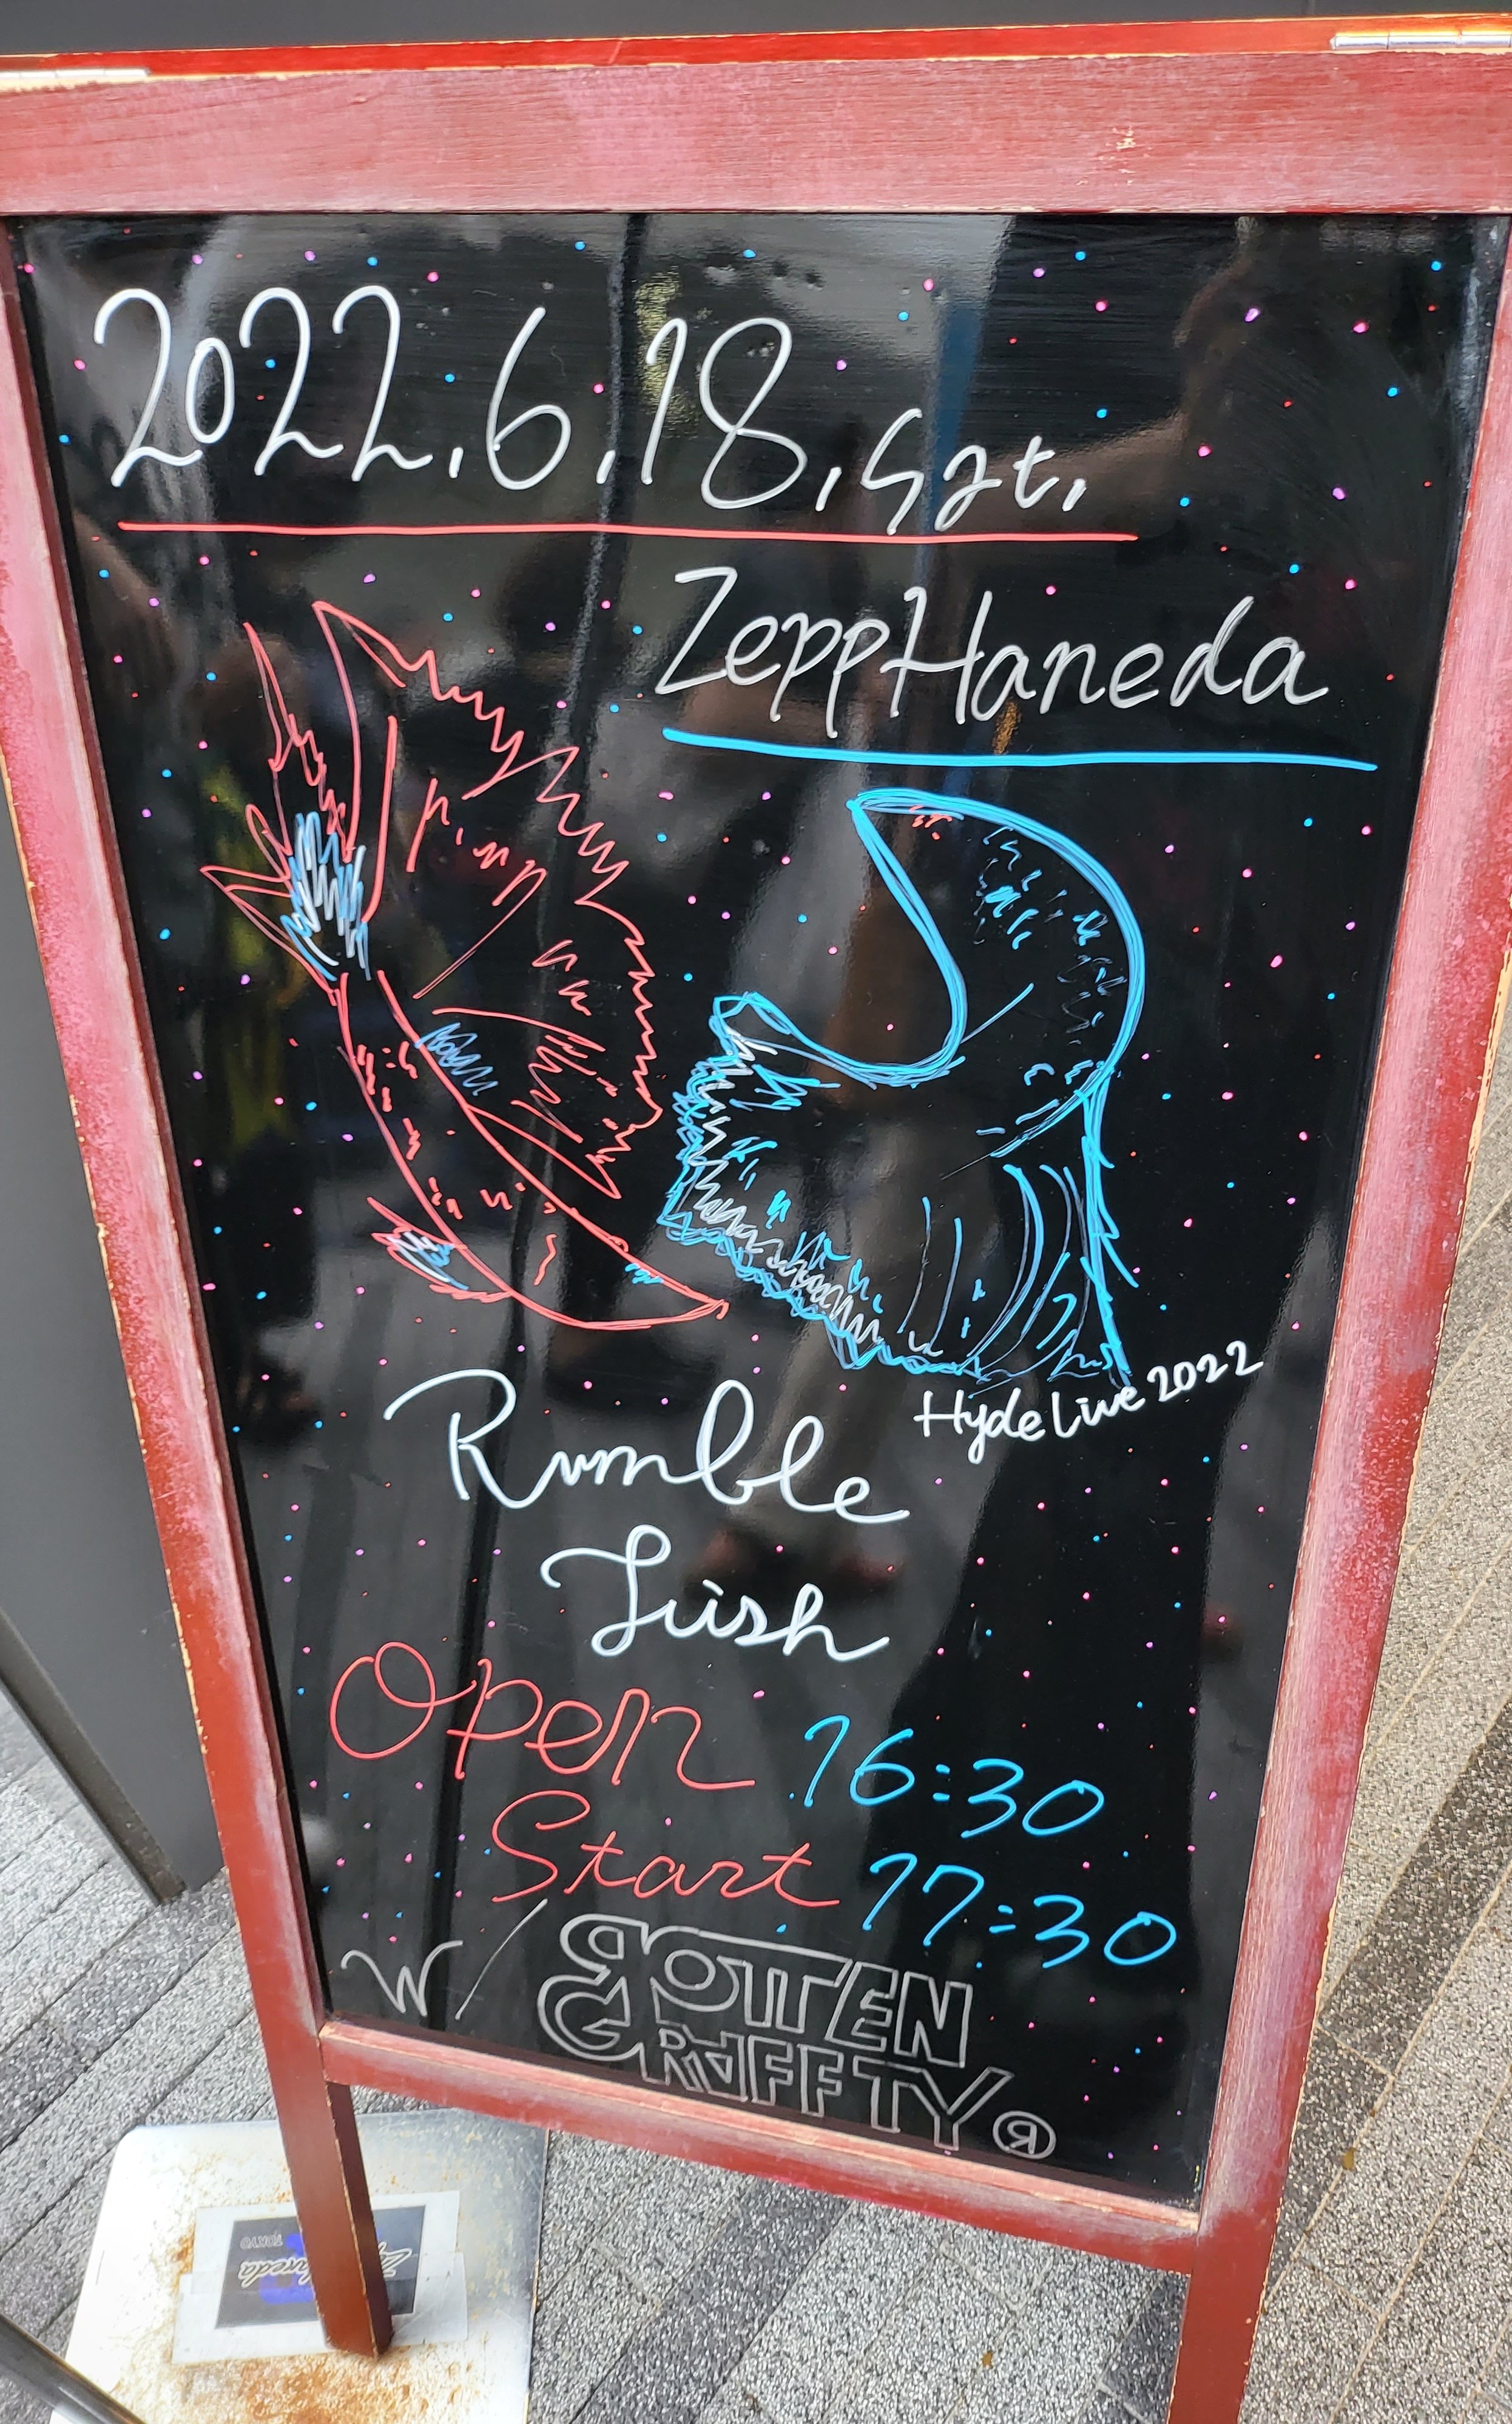 2022.6.18.Sat.
ZeppHaneda
Hyde Live 2022
Rumble
Fish
Open 16:30
Start 17:30
W/ ROTTEN
GRAFFTY R
Zepp Haneda
TOKYO